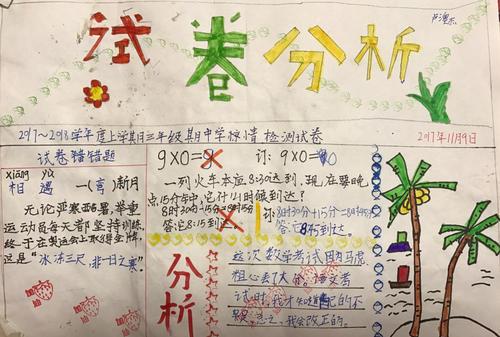 试卷分析
2017~2018学年度上学期三年级期中学情检测试卷
2017年11月9日
试卷错错题
xiāng yù
相 遇 一(言)新月
无论严寒酷暑,举重
运动员每天都坚持训练,
终于在奥运会上取得金牌,
这是“冰冻三尺,非一日之寒”。
9×0=9 订: 9×0=0
一列火车本应8:30达到,现在要晚
点15分钟,它什么时候到达?
答:它8:15到达
8时30分+15分=8时45分
答:它8:45到达。
分析
这次数学考试因为马虎
粗心丢了大分。语文考
试时,我才知道自己的不
足,总之,我会改正的。